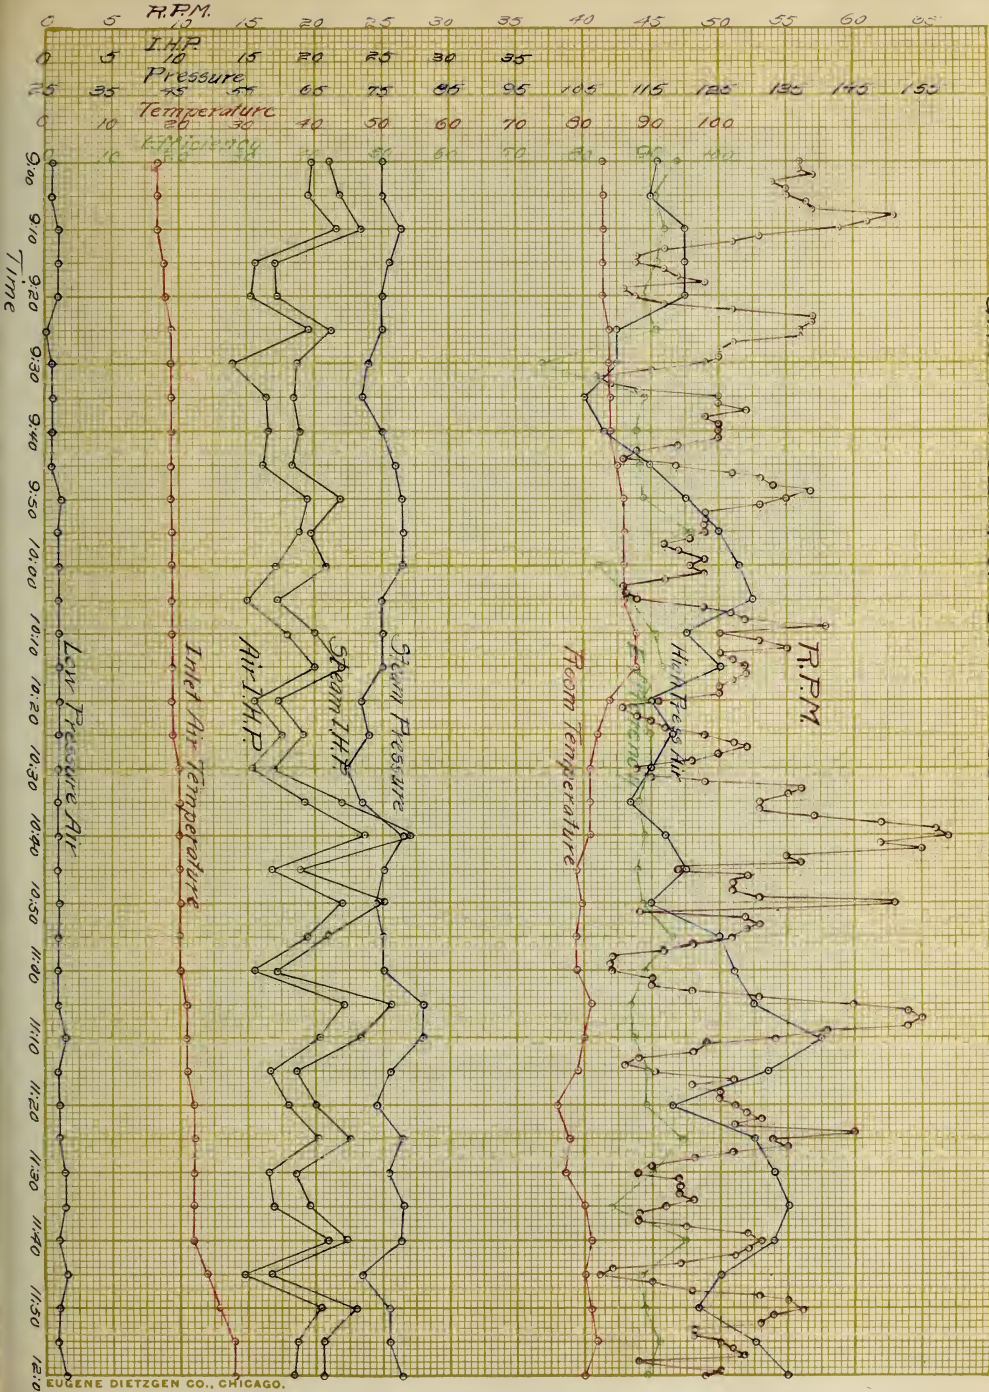 R.P.M.
0 5 10 15 20 25 30 35 40 45 50 55 60 65
I.H.P.
0 5 10 15 20 25 30 35
Pressure
25 35 45 55 65 75 85 95 105 115 125 135 145 155
Temperature
0 10 20 30 40 50 60 70 80 90 100
Efficiency
10 20 30 40 50 60 70 80 90 100
Time
9:00
9:10
9:20
9:30
9:40
9:50
10:00
10:10
10:20
10:30
10:40
10:50
11:00
11:10
11:20
11:30
11:40
11:50
12:0
Low Pressure Air
Inlet Air Temperature
Air I.H.P.
Steam I.H.P.
Steam Pressure
Room Temperature
Efficiency
High Press Air
R.P.M
EUGENE DIETZGEN CO., CHICAGO.